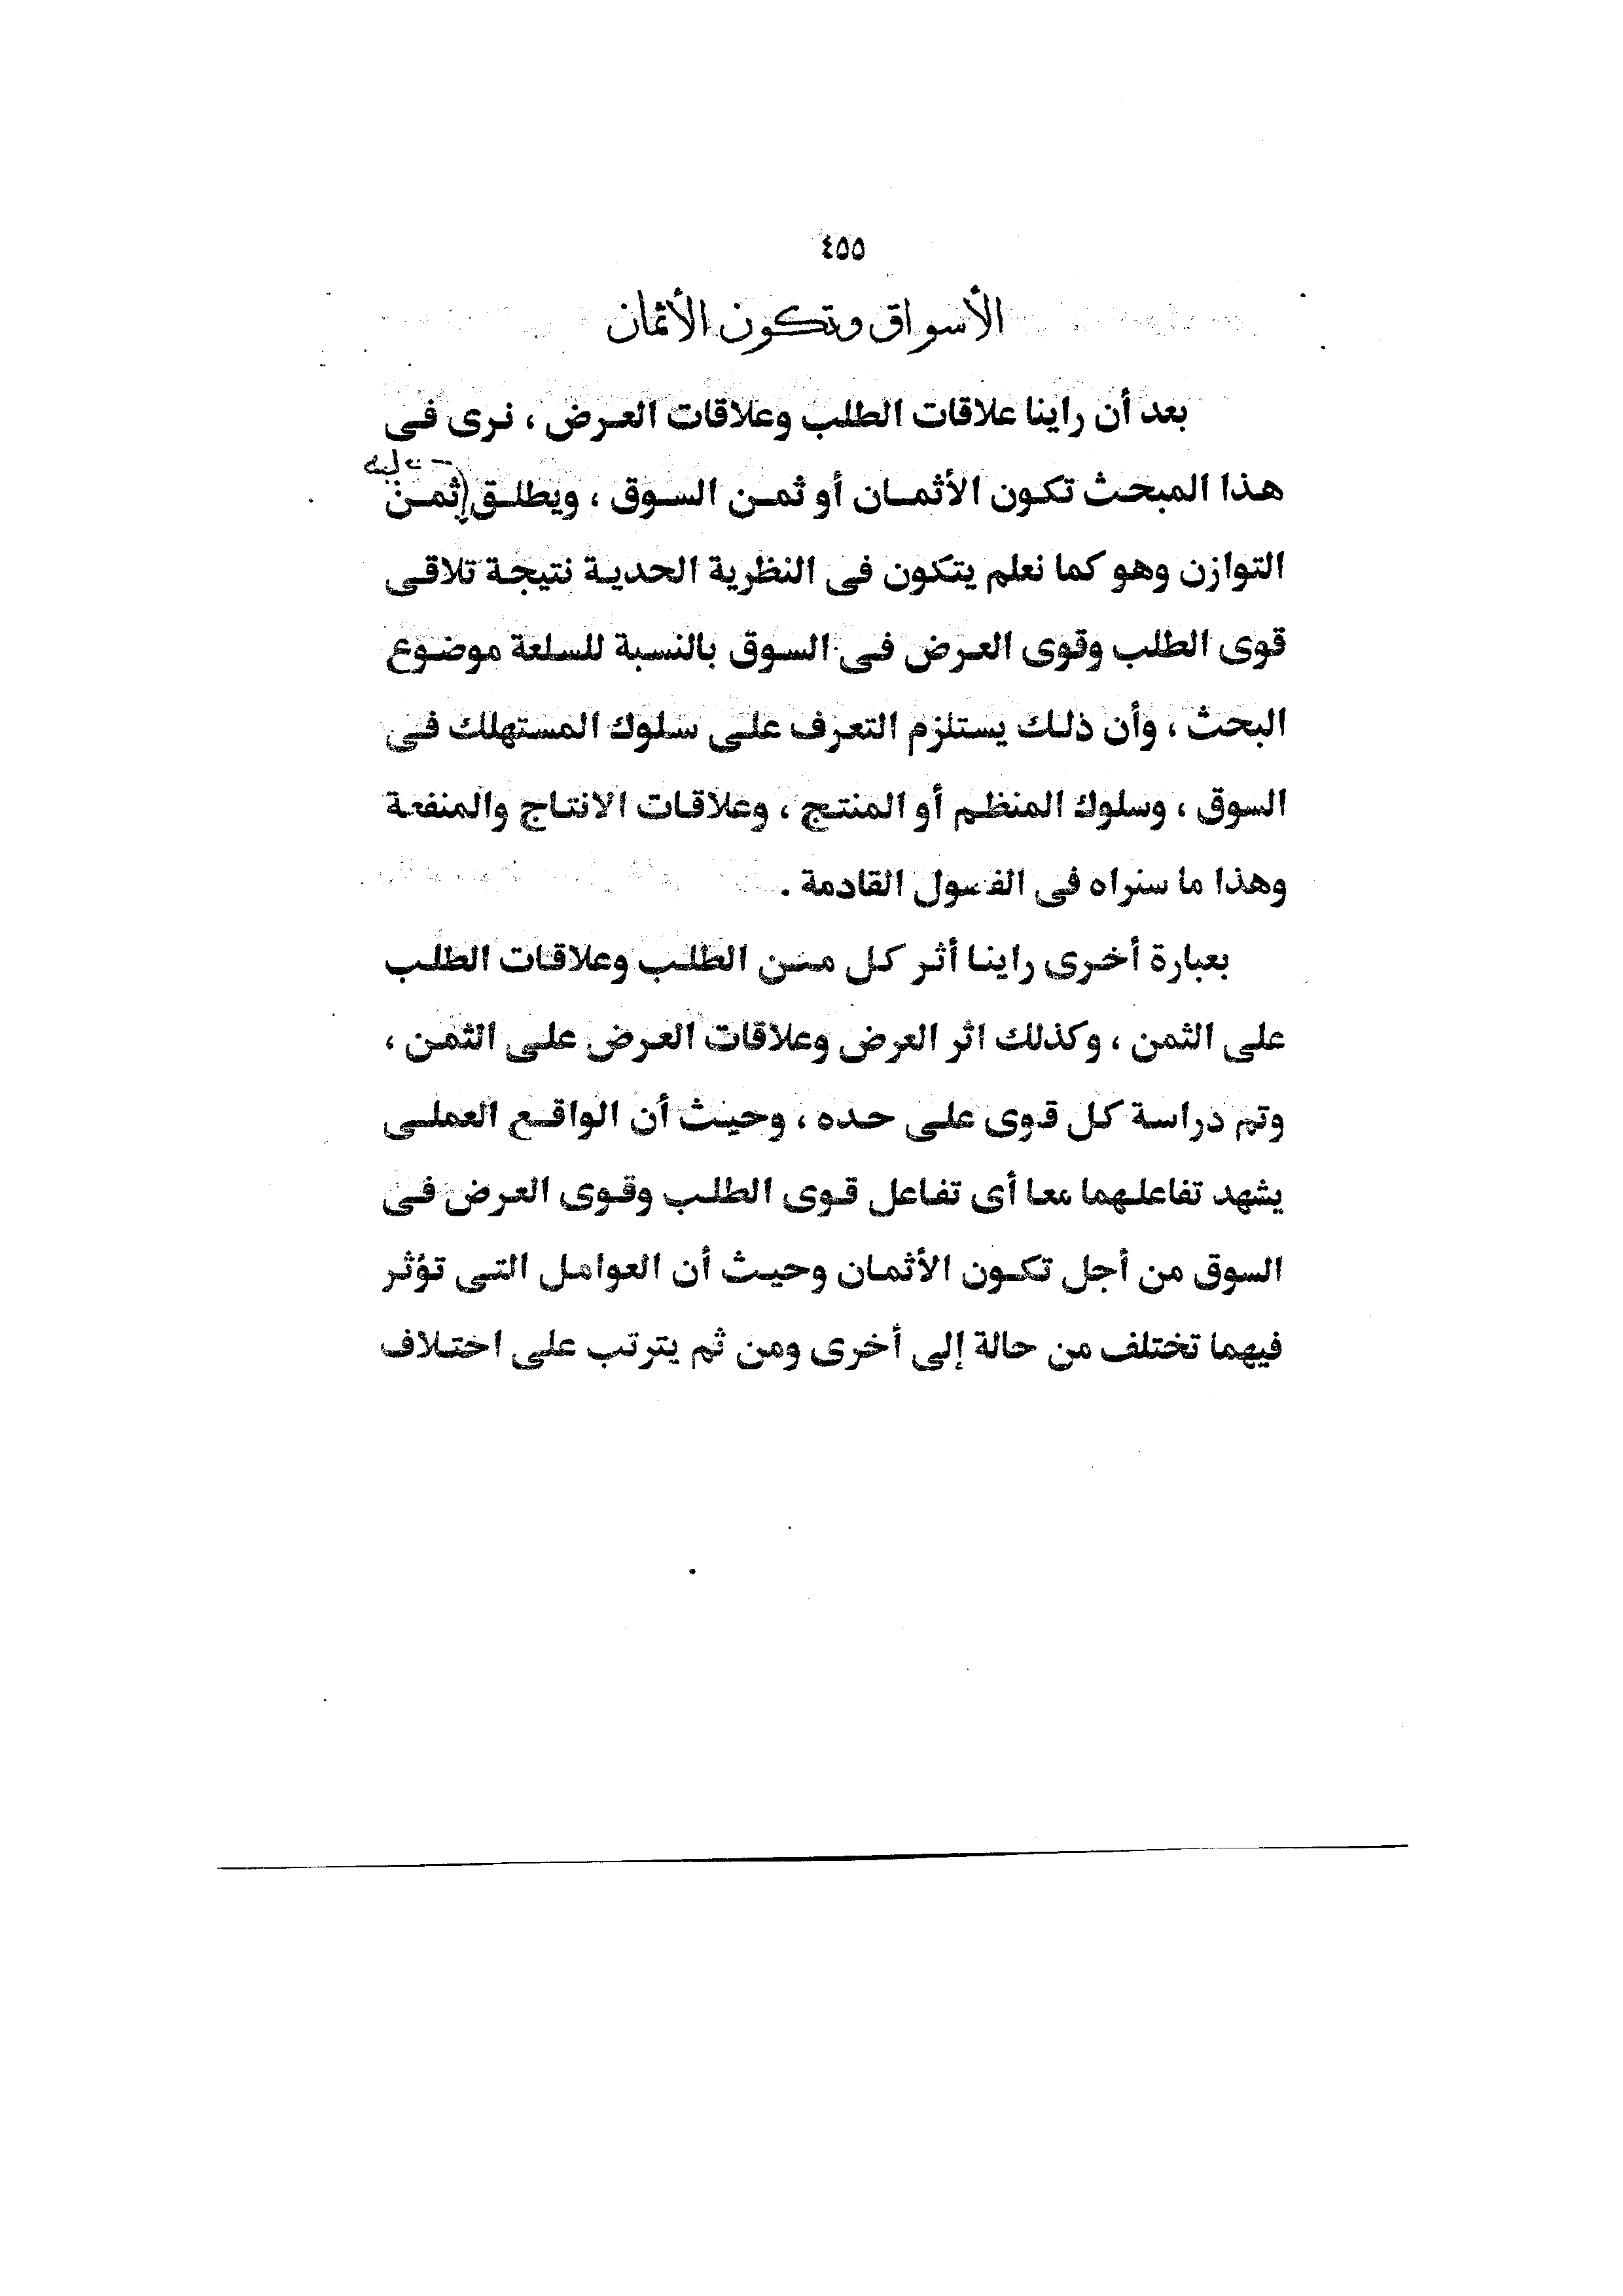 ٤٥٥
الأسواق وتكون الأثمان
بعد أن راينا علاقات الطلب وعلاقات العرض ، نرى فى
هذا المبحث تكون الأثمان أو ثمن السوق ، ويطلق ثمن
التوازن وهو كما نعلم يتكون فى النظرية الحدية نتيجة تلاقى
قوى الطلب وقوى العرض فى السوق بالنسبة للسلعة موضوع
البحث ، وأن ذلك يستلزم التعرف على سلوك المستهلك فى
السوق ، وسلوك المنظم أو المنتج ، وعلاقات الانتاج والمنفعة
وهذا ما سنراه فى الفصول القادمة .
بعبارة أخرى راينا أثر كل من الطلب وعلاقات الطلب
على الثمن ، وكذلك اثر العرض وعلاقات العرض على الثمن ،
وتم دراسة كل قوى على حده ، وحيث أن الواقع العملى
يشهد تفاعلهما معا أى تفاعل قوى الطلب وقوى العرض فى
السوق من أجل تكون الأثمان وحيث أن العوامل التى تؤثر
فيهما تختلف من حالة إلى أخرى ومن ثم يترتب على اختلاف